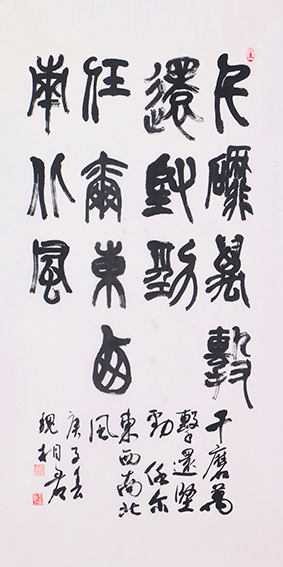 千磨萬擊
還堅勁
任爾東西
南北風
千磨萬
擊還堅
勁任尔
東西南北
風
庚子春
魏相君